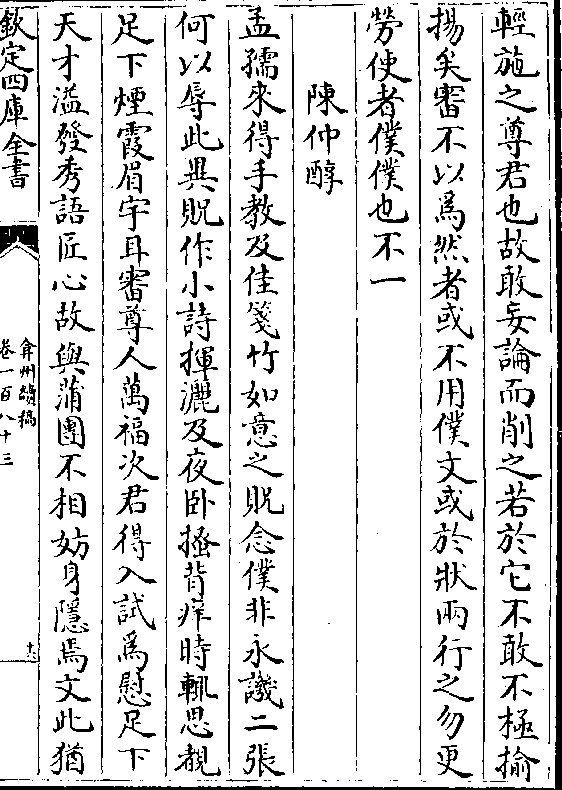 輕施之尊君也故敢妄論而削之若於它不敢不極揄
揚矣審不以爲然者或不用僕文或於狀兩行之勿更
勞使者僕僕也不一
陳仲醇
孟孺來得手教及佳箋竹如意之貺念僕非永譏二張
何以辱此異貺作小詩揮灑及夜卧搔背痒時輒思覩
足下煙霞眉宇耳審尊人萬福次君得入試爲慰足下
天才溢發秀語匠心故與蒲團不相妨身隱焉文此猶
欽定四庫全書
弇州續稿
卷一百八十三